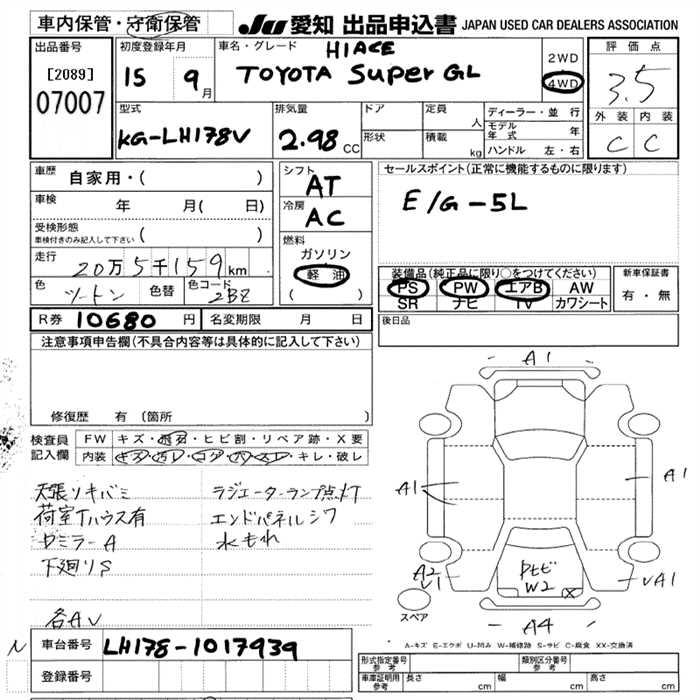 車内保管・守衛保管
JU 愛知 出品申込書 JAPAN USED CAR DEALERS ASSOCIATION
出品番号
[2089]
07007
初度登録年月
15 9月
車名・グレード
HIACE
TOYOTA Super GL
2WD
4WD
評価点
3.5
外装 内装
C C
型式
KG-LH178V
排気量
2.98 CC
ドア
形状
定員 人
積載 kg
ディーラー・並行
モデル年式 年
ハンドル 左・右
車歴 自家用・( )
車検 年 月( 日)
受検形態
車検付きのみ記入して下さい ( )
走行 20万5千159km
色 ツートン 色替 色コード 2BZ
シフト AT
冷房 AC
燃料
ガソリン
軽油
( )
セールスポイント(正常に機能するものに限ります)
E/G-5L
装備品(純正品に限り○をつけてください)
PS PW エアB AW
SR ナビ TV カワシート
新車保証書
有・無
R券 10680円 名変期限 月 日
後日品
注意事項申告欄(不具合内容等は具体的に記入して下さい)
修復歴 有(箇所
検査員記入欄
FW キズ・飛石・ヒビ割・リペア跡・X要
内装 キズ・汚レ・コゲ・穴・スレ・キレ・破レ
天張リキバミ
荷室Tハウス有
ヤミラーA
下廻りS
各AV
ラジエーターランプ点灯
エンドパネルシワ
水もれ
A1
A1
A1
A2
V1
PセビW2
X
VA1
A4
スペア
A-キズ E-エクボ U-凹み W-補修跡 S-サビ C-腐食 XX-交換済
N
車台番号 LH178-1017939
登録番号
形式指定番号 参考
類別区分番号 参考
車庫証明用 参考 長さ cm 幅 cm 高さ cm